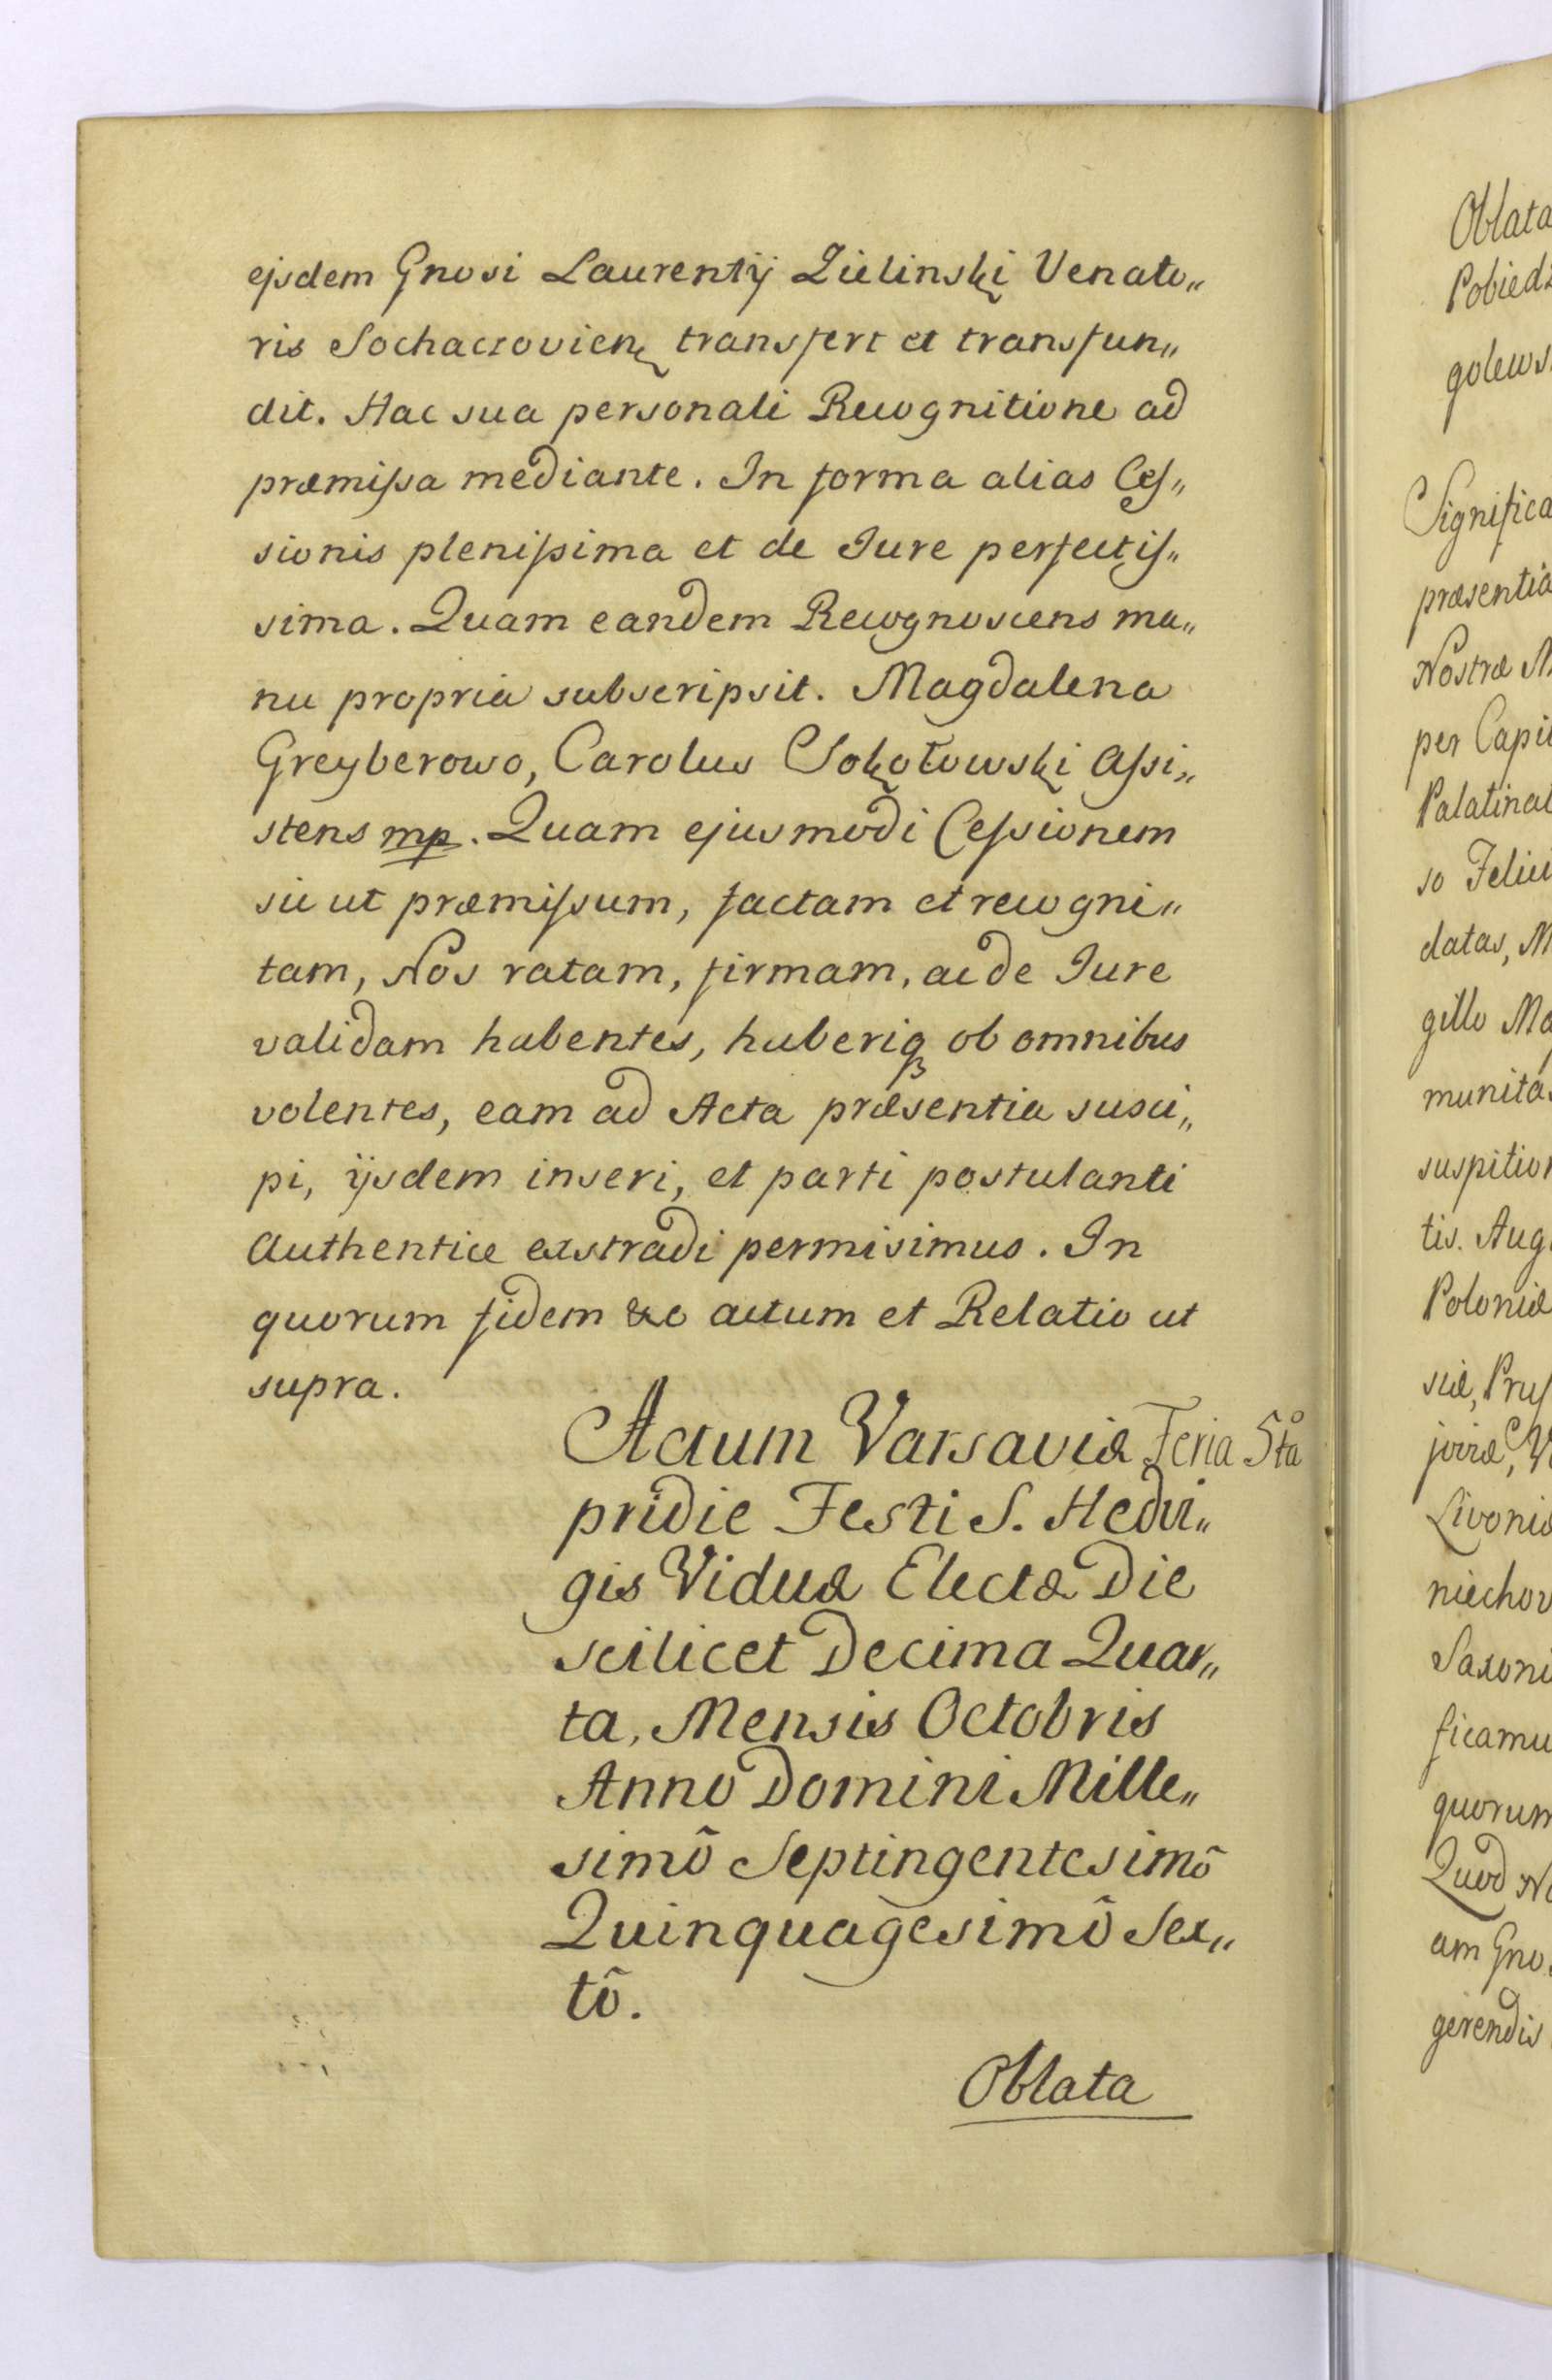 ejsdem Gnosi Laurentij Zielinski Venato„
ris Sochaczovien transfert et transfun„
dit. Hac sua personali Recognitione ad
præmiſsa mediante. In forma alias Ceſ„
sionis pleniſsima et de Jure perfectiſ„
sima. Quam eandem Recognoscens ma„
nu propria subscripsit. Magdalena
Greyberowo, Carolus Sokołowski Aſsi„
stens mp. Quam ejusmodi Ceſsionem
sic ut præmiſsum, factam et recogni„
tam, Nos ratam, firmam, ac de Jure
validam habentes, haberiq ob omnibus
volentes, eam ad Acta præsentia susci„
pi, ijsdem inseri, et parti postulanti
Authentice exstradi permisimus. In
quorum fidem &c actum et Relatio ut
supra.
Actum Varsaviæ Feria 5tå
pridie Festi S. Hedvi„
gis Viduæ Electæ Die
scilicet Decima Quar„
ta, Mensis Octobris
Anno Domini Mille„
simõ Septingentesimõ
Quinquagesimõ Sex„
tõ.
Oblata
Oblata
Pobiedz
golews
Significa
præsentia
Nostræ M
per Capi
Palatinat
so Felici
datas, M
gillo Ma
munitas
suspition
tis. Aug
Poloniæ
siæ, Pruſ
joviæ, V
Livoniæ
niechov
Saxoni
ficamu
quorum
Quod No
am Gno
gerendis